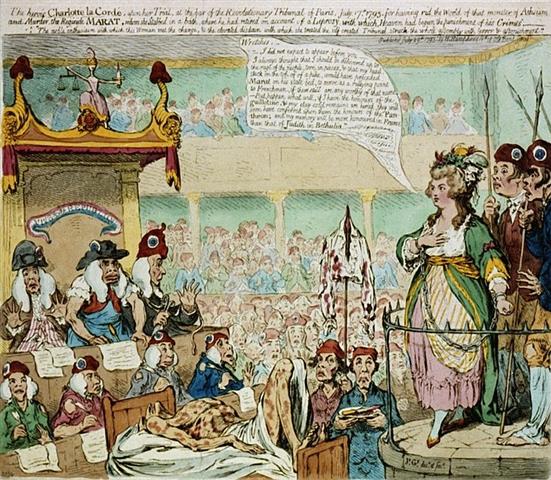 The heroic Charlotte la Cordé, upon her Trial, at the bar of the Revolutionary Tribunal of Paris, July 17th 1793, for having rid the World of that monster of Atheism
and Murder, the Regicide MARAT, whom she Stabbed in a bath, where he had retired on account of a Leprosy, with which, Heaven had begun the punishment of his Crimes.
"The noble enthusiasm with which this Woman met the charge, & the elevated disdain with which she treated the self created Tribunal, struck the whole assembly with terror & astonishment."
Published July 29th 1793 by H. Humphrey
Wretches,
I did not expect to appear before you
I always thought that I should be delivered up to
the rage of the people, torn in pieces, & that my head,
stuck on the top of a pike, would have preceded
Marat on his state bed, to serve as a rallying point
to Frenchmen, if there still are any worthy of that
name. But, happen what will, if I have the honours of the
guillotine, & my clay-cold remains are buried, they will
soon have conferred upon them the honours of the Pan-
theon; and my memory will be more honoured in France
than that of Judith in Bethulia.
Js Gy desn et fect